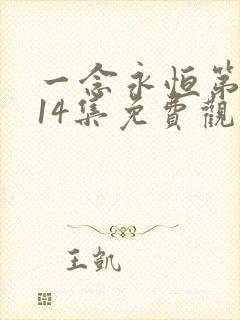 一念永恒第
14集免費觀
王凯